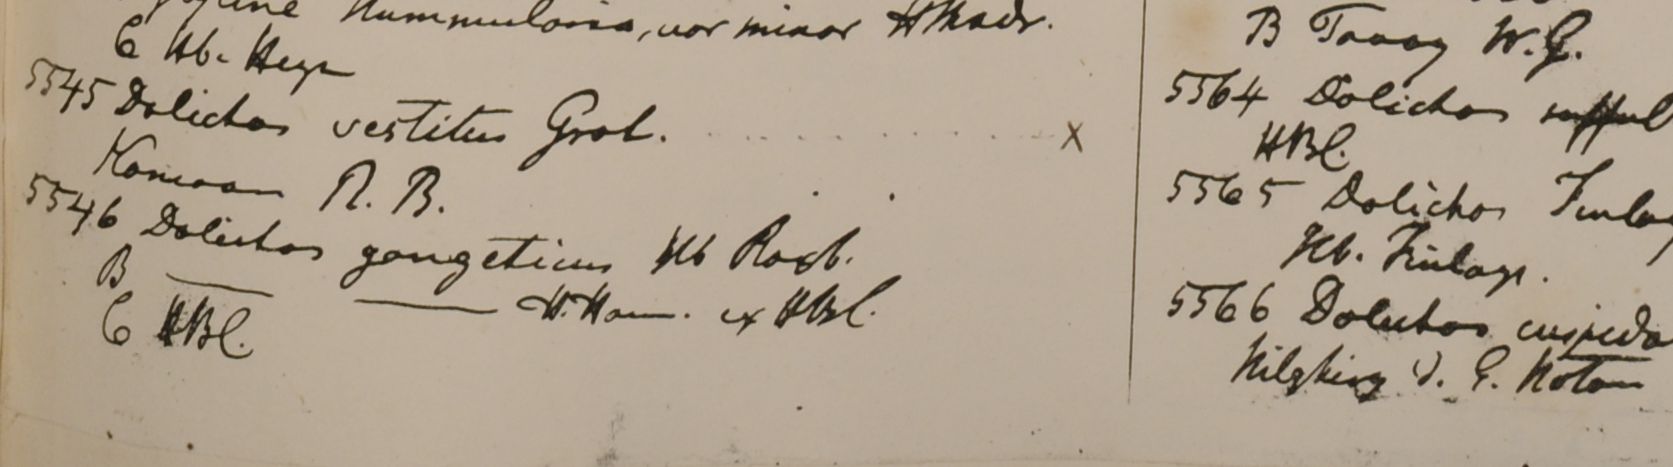 Nummularia, var minor HMadr.
C Hb. Heyn
5545 Dolichos vestitus Grah. x
Kamaon R. B.
5546 Dolichos gangeticus Hb Roxb.
B — — H. Ham. ex HBC.
C HBC.
B Tavoy W.G.
5564 Dolichos
HBC.
5565 Dolichos Finlay
Hb. Finlays.
5566 Dolichos cuspida
Nilghiry